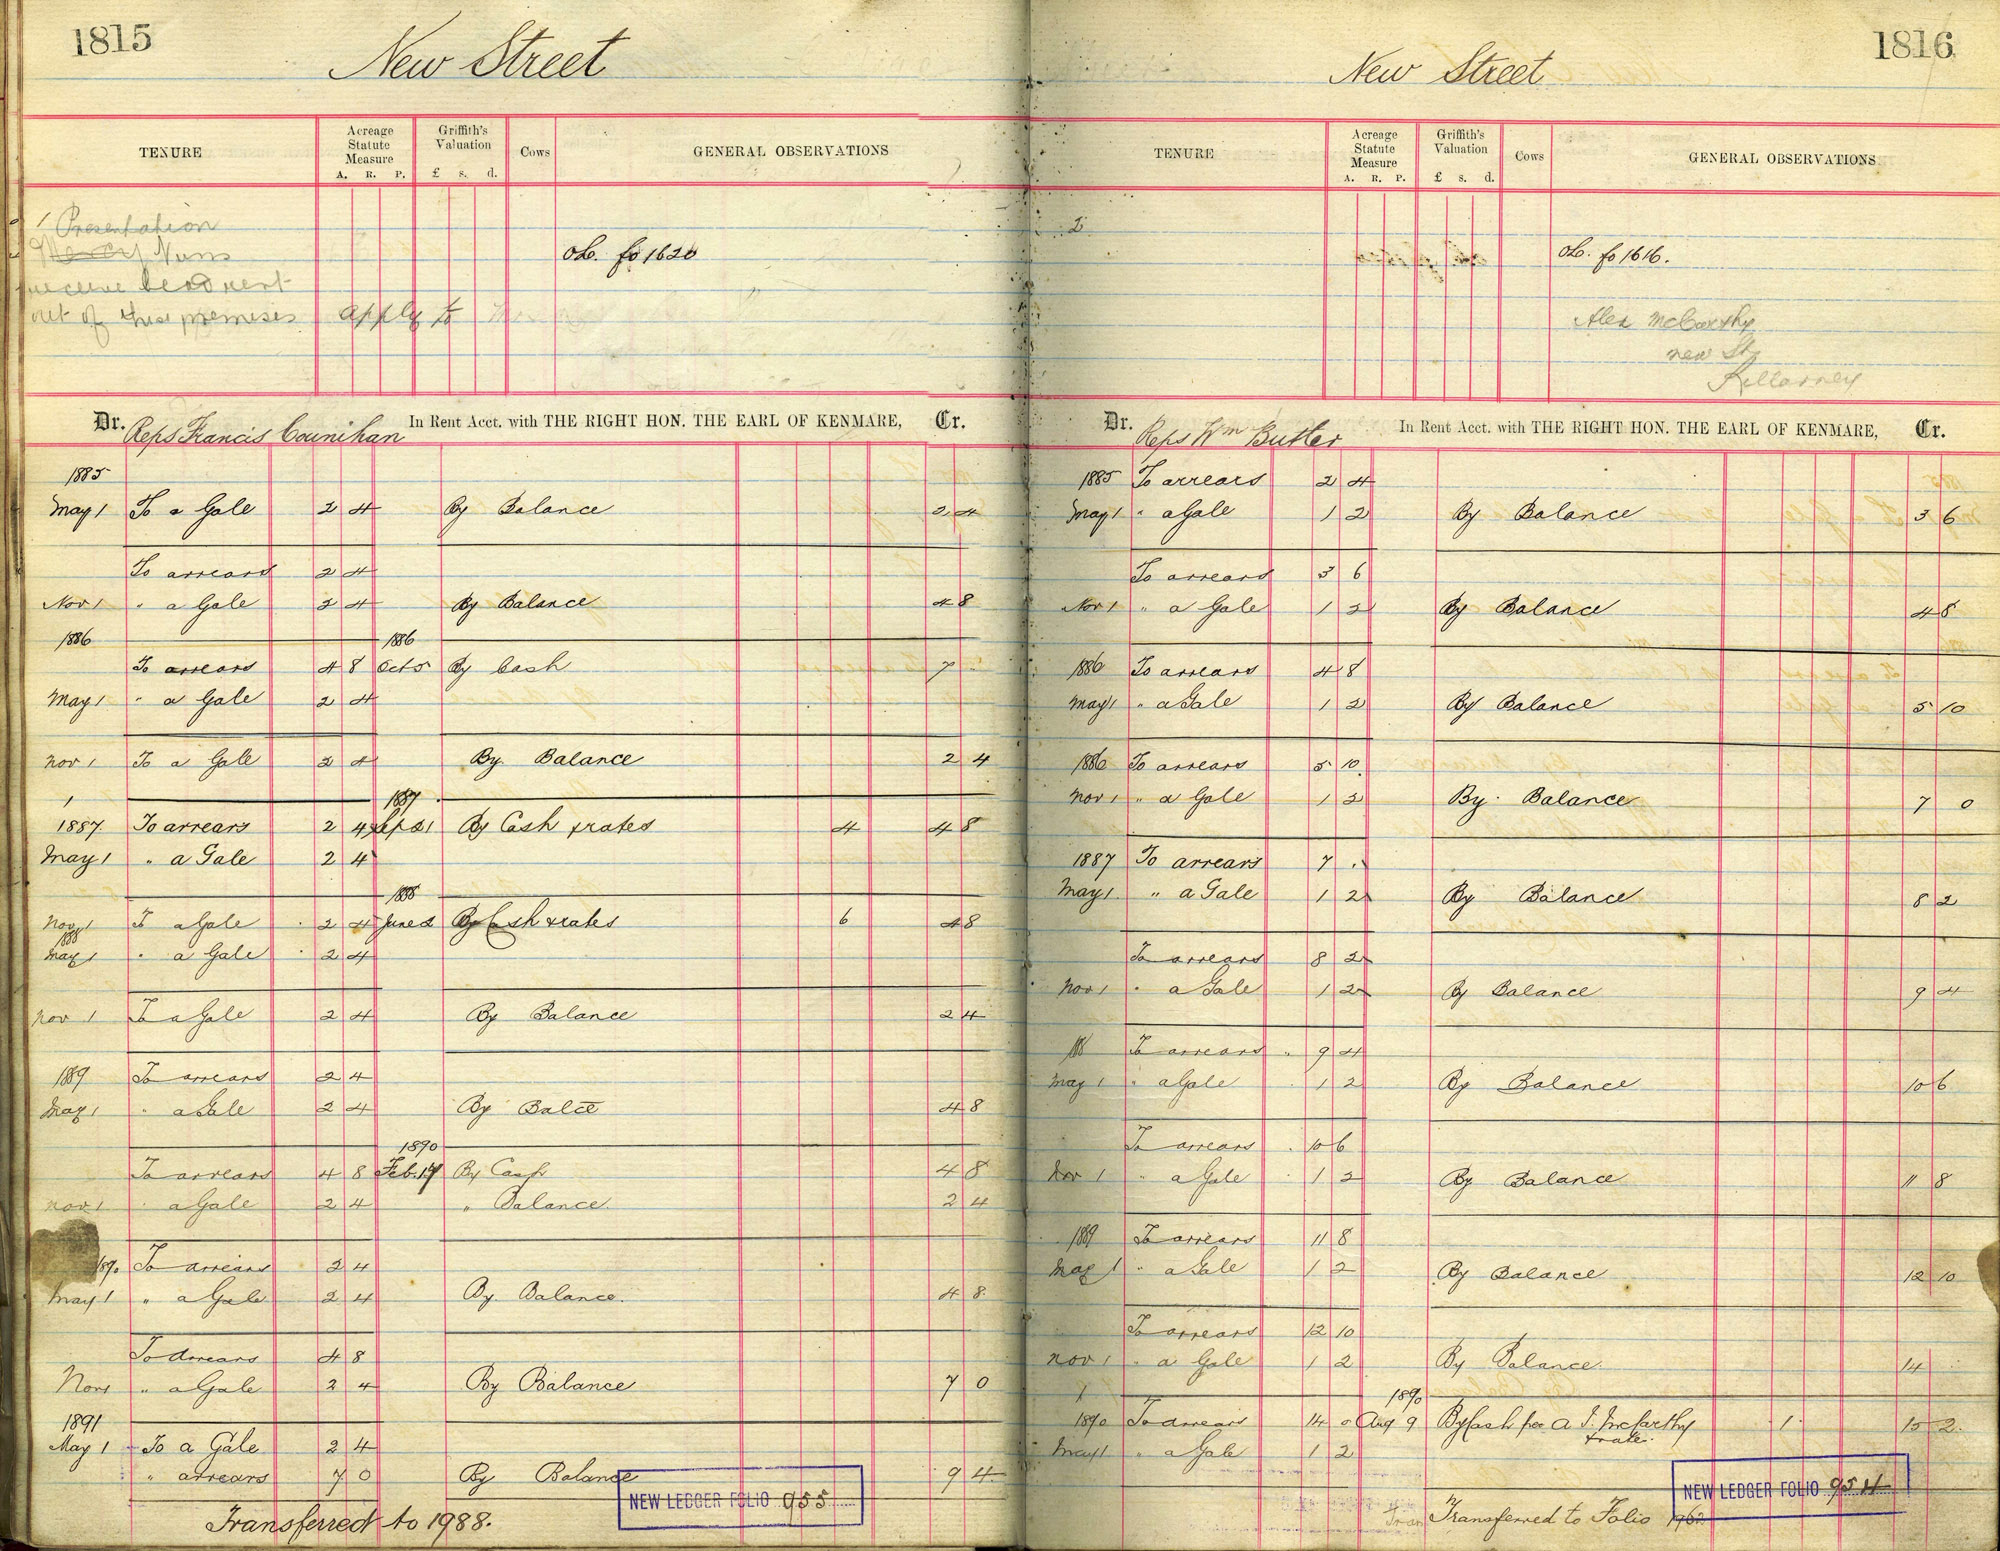 1815
New Street
TENURE
Acreage Statute Measure
A. R. P.
Griffith's Valuation
£ s. d.
Cows
GENERAL OBSERVATIONS
1 Presentation
Mercy Nuns
receive head rent
out of these premises apply to
OL. fo 1620
Dr. Reps Francis Counihan In Rent Acct. with THE RIGHT HON. THE EARL OF KENMARE, Cr.
1885
May 1 To a Gale 2 4 By Balance 2 4
To arrears 2 4
Nov 1 " a Gale 2 4 By Balance 4 8
1886 1886
To arrears 4 8 Oct 5 By Cash 7 "
May 1 " a Gale 2 4
Nov 1 To a Gale 2 4 By Balance 2 4
1 1887
1887 To arrears 2 4 Sep 21 By Cash & rates 4 4 8
May 1 " a Gale 2 4
1888
Nov 1 To a Gale 2 4 June 2 By Cash & rates 6 4 8
1888
May 1 " a Gale 2 4
Nov 1 To a Gale 2 4 By Balance 2 4
1889 To arrears 2 4
May 1 " a Gale 2 4 By Balce 4 8
1890
To arrears 4 8 Feb. 17 By Cash 4 8
Nov 1 " a Gale 2 4 " Balance 2 4
1890 To arrears 2 4
May 1 " a Gale 2 4 By Balance 4 8
To arrears 4 8
Nov 1 " a Gale 2 4 By Balance 7 0
1891
May 1 To a Gale 2 4
" arrears 7 0 By Balance 9 4
NEW LEDGER FOLIO 955
Transferred to 1988.
1816
New Street
TENURE
Acreage Statute Measure
A. R. P.
Griffith's Valuation
£ s. d.
Cows
GENERAL OBSERVATIONS
2
OL. fo 1616.
Alex McCarthy
new St
Killarney
Dr. Reps Wm Butler In Rent Acct. with THE RIGHT HON. THE EARL OF KENMARE, Cr.
1885 To arrears 2 4
May 1 " a Gale 1 2 By Balance 3 6
To arrears 3 6
Nov 1 " a Gale 1 2 By Balance 4 8
1886 To arrears 4 8
May 1 " a Gale 1 2 By Balance 5 10
1886 To arrears 5 10
Nov 1 " a Gale 1 2 By Balance 7 0
1887 To arrears 7 "
May 1 " a Gale 1 2 By Balance 8 2
To arrears 8 2
Nov 1 " a Gale 1 2 By Balance 9 4
188 To arrears 9 4
May 1 " a Gale 1 2 By Balance 10 6
To arrears 10 6
Nov 1 " a Gale 1 2 By Balance 11 8
1889 To arrears 11 8
May 1 " a Gale 1 2 By Balance 12 10
To arrears 12 10
Nov 1 " a Gale 1 2 By Balance 14
1 1890
1890 To arrears 14 0 Aug 9 By Cash per A J. McCarthy 1 15 2
& rate
May 1 " a Gale 1 2
NEW LEDGER FOLIO 954
Transferred to Folio 1962